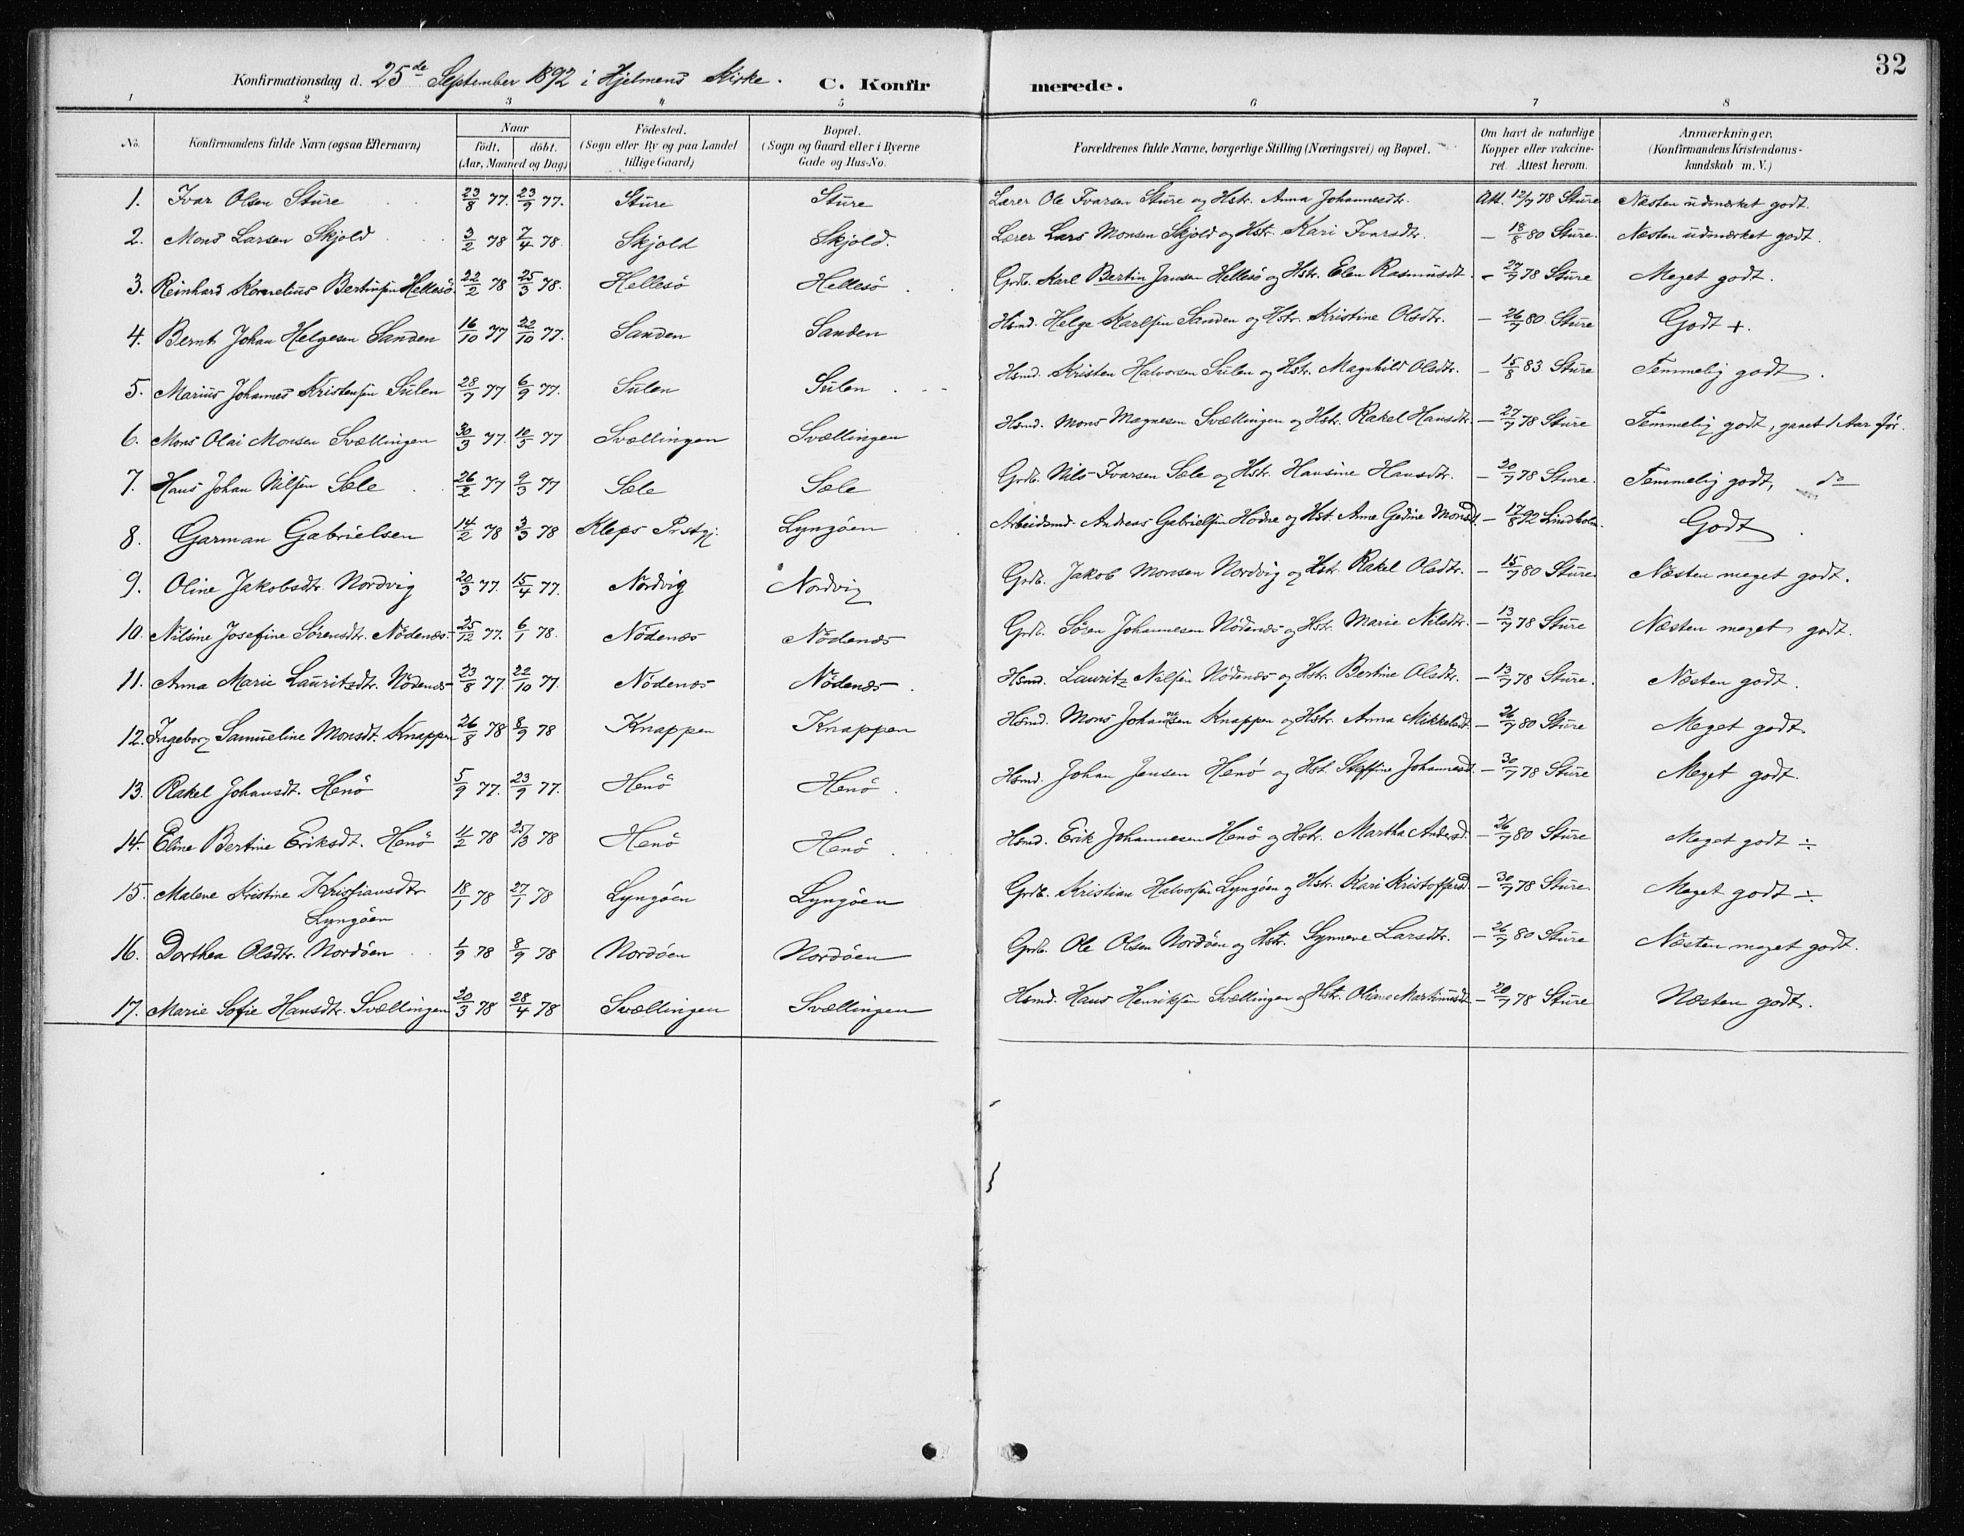 32
Konfirmationsdag d. 25de September 1892 i Hjelmens Kirke. C. Konfirmerede.
1 2 3 4 5 6 7 8
No. Konfirmandens fulde Navn (ogsaa Efternavn) Naar født, døbt. (Aar, Maaned og Dag) Fødested. (Sogn eller By og paa Landet tillige Gaard) Bopæl. (Sogn og Gaard eller i Byerne Gade og Hus-No. Forældrenes fulde Navne, borgerlige Stilling (Næringsvei) og Bopæl. Om havt de naturlige Kopper eller vakcineret. Attest herom. Anmærkninger. (Konfirmandens Kristendomskundskab m. V.)
1. Ivar Olsen Sture 23/8 77. 23/9 77. Sture Sture Lærer Ole Ivarsen Sture og Hstr. Anna Johannesdtr. Att. 12/7 78 Sture Næsten udmærket godt.
2. Mons Larsen Skjold 3/2 78 7/4 78. Skjold Skjold. Lærer Lars Monsen Skjold og Hstr. Kari Ivarsdtr. — 18/8 80 Sture. Næsten udmærket godt.
3. Reinhard Kornelius Bertinsen Hellesö. 22/2 78 25/3 78. Hellesö Hellesö Grdb. Karl Bertin Jansen Hellesö og Hstr. Elen Rasmusdt. — 27/7 78 Sture Meget godt.
4. Bernt Johan Helgesen Sanden 16/10 77 22/10 77. Sanden Sanden Hsmd. Helge Karlsen Sanden og Hstr. Kristine Olsdtr. — 26/7 80 Sture Godt +.
5. Marius Johannes Kristensen Sulen 28/7 77 6/9 77. Sulen Sulen Hsmd. Kristen Halvorsen Sulen og Hstr. Magnhild Olsdtr. — 15/8 83 Sture Temmelig godt.
6. Mons Olai Monsen Svællingen 30/3 77. 10/5 77 Svællingen Svællingen Hsmd. Mons Magnesen Svællingen og Hstr. Rakel Hansdtr. — 27/7 78 Sture Temmelig godt, gaaet 1 Aar før.
7. Hans Johan Nilsen Sæle 26/2 77 9/3 77 Sæle Sæle Grdb. Nils Ivarsen Sæle og Hstr. Hansine Hansdtr. — 20/7 78 Sture. Temmelig godt, do
8. Garman Gabrielsen 14/2 78 3/3 78 Kleps Prstgj. Lyngöen Arbeidsmd. Andreas Gabrielsen Hodne og Hst. Ane Gedine Monsd. — 17/8 92 Lindholm. Godt
9. Oline Jakobsdtr. Nordvig 20/3 77. 15/4 77. Nordvig Nordvig Grdb. Jakob Monsen Nordvig og Hstr. Rakel Olsdtr. — 15/7 80 Sture. Næsten meget godt.
10. Nilsine Josefine Sørensdtr. Nödenæs. 25/12 77. 6/1 78. Nödenæs Nödenæs Grdb. Sören Johannesen Nödenæs og Hstr. Marie Nilsdtr. — 13/7 78 Sture Næsten meget godt.
11. Anna Marie Lauritsdtr. Nödenæs 23/8 77. 22/10 77. Nödenæs Nödenæs. Hsmd. Lauritz Nilsen Nödenæs og Hstr. Bertine Olsdtr. — 13/7 78 Sture. Næsten godt.
12. Ingeborg Samueline Monsdt. Knappen 26/8 78 8/9 78 Knappen Knappen Hsmd. Mons Johannesen Knappen og Hstr. Anna Mikkelsdt — 26/7 80 Sture Meget godt.
13. Rakel Johansdt. Henö 5/9 77. 23/9 77. Henö Henö. Hsmd. Johan Jensen Henö og Hst. Steffine Johannesd. — 30/7 78 Sture Meget godt.
14. Eline Bertine Eriksdt. Henö 11/2 78 25/3 78 Henö Henö Hsmd. Erik Johannesen Henö og Hstr. Martha Andersd. — 26/7 80 Sture Meget godt ÷
15. Malene Kristine Kristiansdtr Lyngöen 18/1 78 27/1 78 Lyngöen Lyngöen Grdb. Kristian Halvorsen Lyngöen og Hstr. Kari Kristoffersd. — 30/7 78 Sture. Meget godt ÷
16. Dorthea Olsdtr. Nordöen 1/9 78 8/9 78 Nordöen Nordöen Grdb. Ole Olsen Nordöen og Hstr. Synneve Larsdtr. — 26/7 80 Sture Næsten meget godt.
17. Marie Sofie Hansdtr. Svællingen 20/3 78 28/4 78 Svællingen Svællingen Hsmd. Hans Henriksen Svællingen og Hstr. Oliane Martinusdt — 20/7 78 Sture Næsten godt.